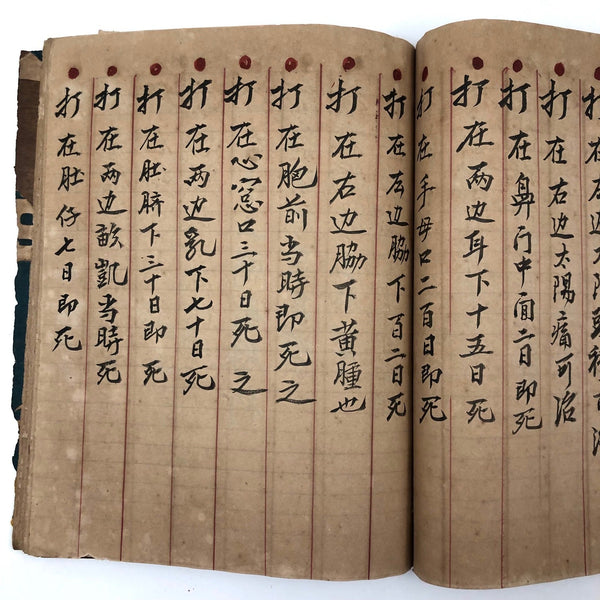 打在右边太陽痛可治
打在鼻门中间二日即死
打在两边耳下十五日死
打在手母口二百日即死
打在左边脇下百二日死
打在右边脇下黄腫也
打在胞前当時即死之
打在心窓口三十日死之
打在两边乳下七十日死
打在肚臍下三十日即死
打在两边凱当時死
打在肚仔七日即死